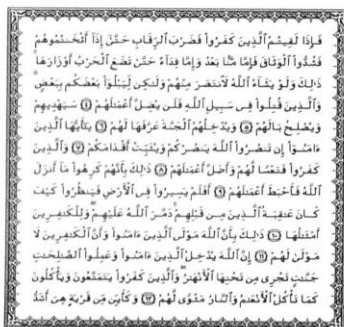 فَإِذَا لَقِيتُمُ ٱلَّذِينَ كَفَرُوا۟ فَضَرْبَ ٱلرِّقَابِ حَتَّىٰٓ إِذَآ أَثْخَنتُمُوهُمْ
فَشُدُّوا۟ ٱلْوَثَاقَ فَإِمَّا مَنًّۢا بَعْدُ وَإِمَّا فِدَآءً حَتَّىٰ تَضَعَ ٱلْحَرْبُ أَوْزَارَهَا ۚ
ذَٰلِكَ وَلَوْ يَشَآءُ ٱللَّهُ لَٱنتَصَرَ مِنْهُمْ وَلَٰكِن لِّيَبْلُوَا۟ بَعْضَكُم بِبَعْضٍ ۗ
وَٱلَّذِينَ قُتِلُوا۟ فِى سَبِيلِ ٱللَّهِ فَلَن يُضِلَّ أَعْمَٰلَهُمْ ٤ سَيَهْدِيهِمْ
وَيُصْلِحُ بَالَهُمْ ٥ وَيُدْخِلُهُمُ ٱلْجَنَّةَ عَرَّفَهَا لَهُمْ ٦ يَٰٓأَيُّهَا ٱلَّذِينَ
ءَامَنُوٓا۟ إِن تَنصُرُوا۟ ٱللَّهَ يَنصُرْكُمْ وَيُثَبِّتْ أَقْدَامَكُمْ ٧ وَٱلَّذِينَ
كَفَرُوا۟ فَتَعْسًا لَّهُمْ وَأَضَلَّ أَعْمَٰلَهُمْ ٨ ذَٰلِكَ بِأَنَّهُمْ كَرِهُوا۟ مَآ أَنزَلَ
ٱللَّهُ فَأَحْبَطَ أَعْمَٰلَهُمْ ٩ أَفَلَمْ يَسِيرُوا۟ فِى ٱلْأَرْضِ فَيَنظُرُوا۟ كَيْفَ
كَانَ عَٰقِبَةُ ٱلَّذِينَ مِن قَبْلِهِمْ ۚ دَمَّرَ ٱللَّهُ عَلَيْهِمْ ۖ وَلِلْكَٰفِرِينَ
أَمْثَٰلُهَا ١٠ ذَٰلِكَ بِأَنَّ ٱللَّهَ مَوْلَى ٱلَّذِينَ ءَامَنُوا۟ وَأَنَّ ٱلْكَٰفِرِينَ لَا
مَوْلَىٰ لَهُمْ ١١ إِنَّ ٱللَّهَ يُدْخِلُ ٱلَّذِينَ ءَامَنُوا۟ وَعَمِلُوا۟ ٱلصَّٰلِحَٰتِ
جَنَّٰتٍ تَجْرِى مِن تَحْتِهَا ٱلْأَنْهَٰرُ ۖ وَٱلَّذِينَ كَفَرُوا۟ يَتَمَتَّعُونَ وَيَأْكُلُونَ
كَمَا تَأْكُلُ ٱلْأَنْعَٰمُ وَٱلنَّارُ مَثْوًى لَّهُمْ ١٢ وَكَأَيِّن مِّن قَرْيَةٍ هِىَ أَشَدُّ